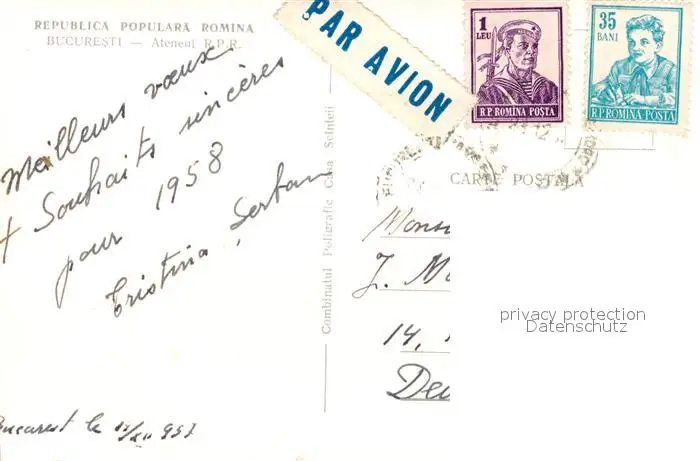 REPUBLICA POPULARĂ ROMINA
BUCUREȘTI — Ateneul R.P.R.
PAR AVION
1
LEU
R.P. ROMINA POSTA
35
BANI
R.P. ROMINA POSTA
Meilleurs vœux
+ Souhaits sincères
pour 1958
Cristina, Serban
Bucarest le
Combinatul Poligrafic Casa Scînteii
CARTE POSTALA
J. M
14,
privacy protection
Datenschutz